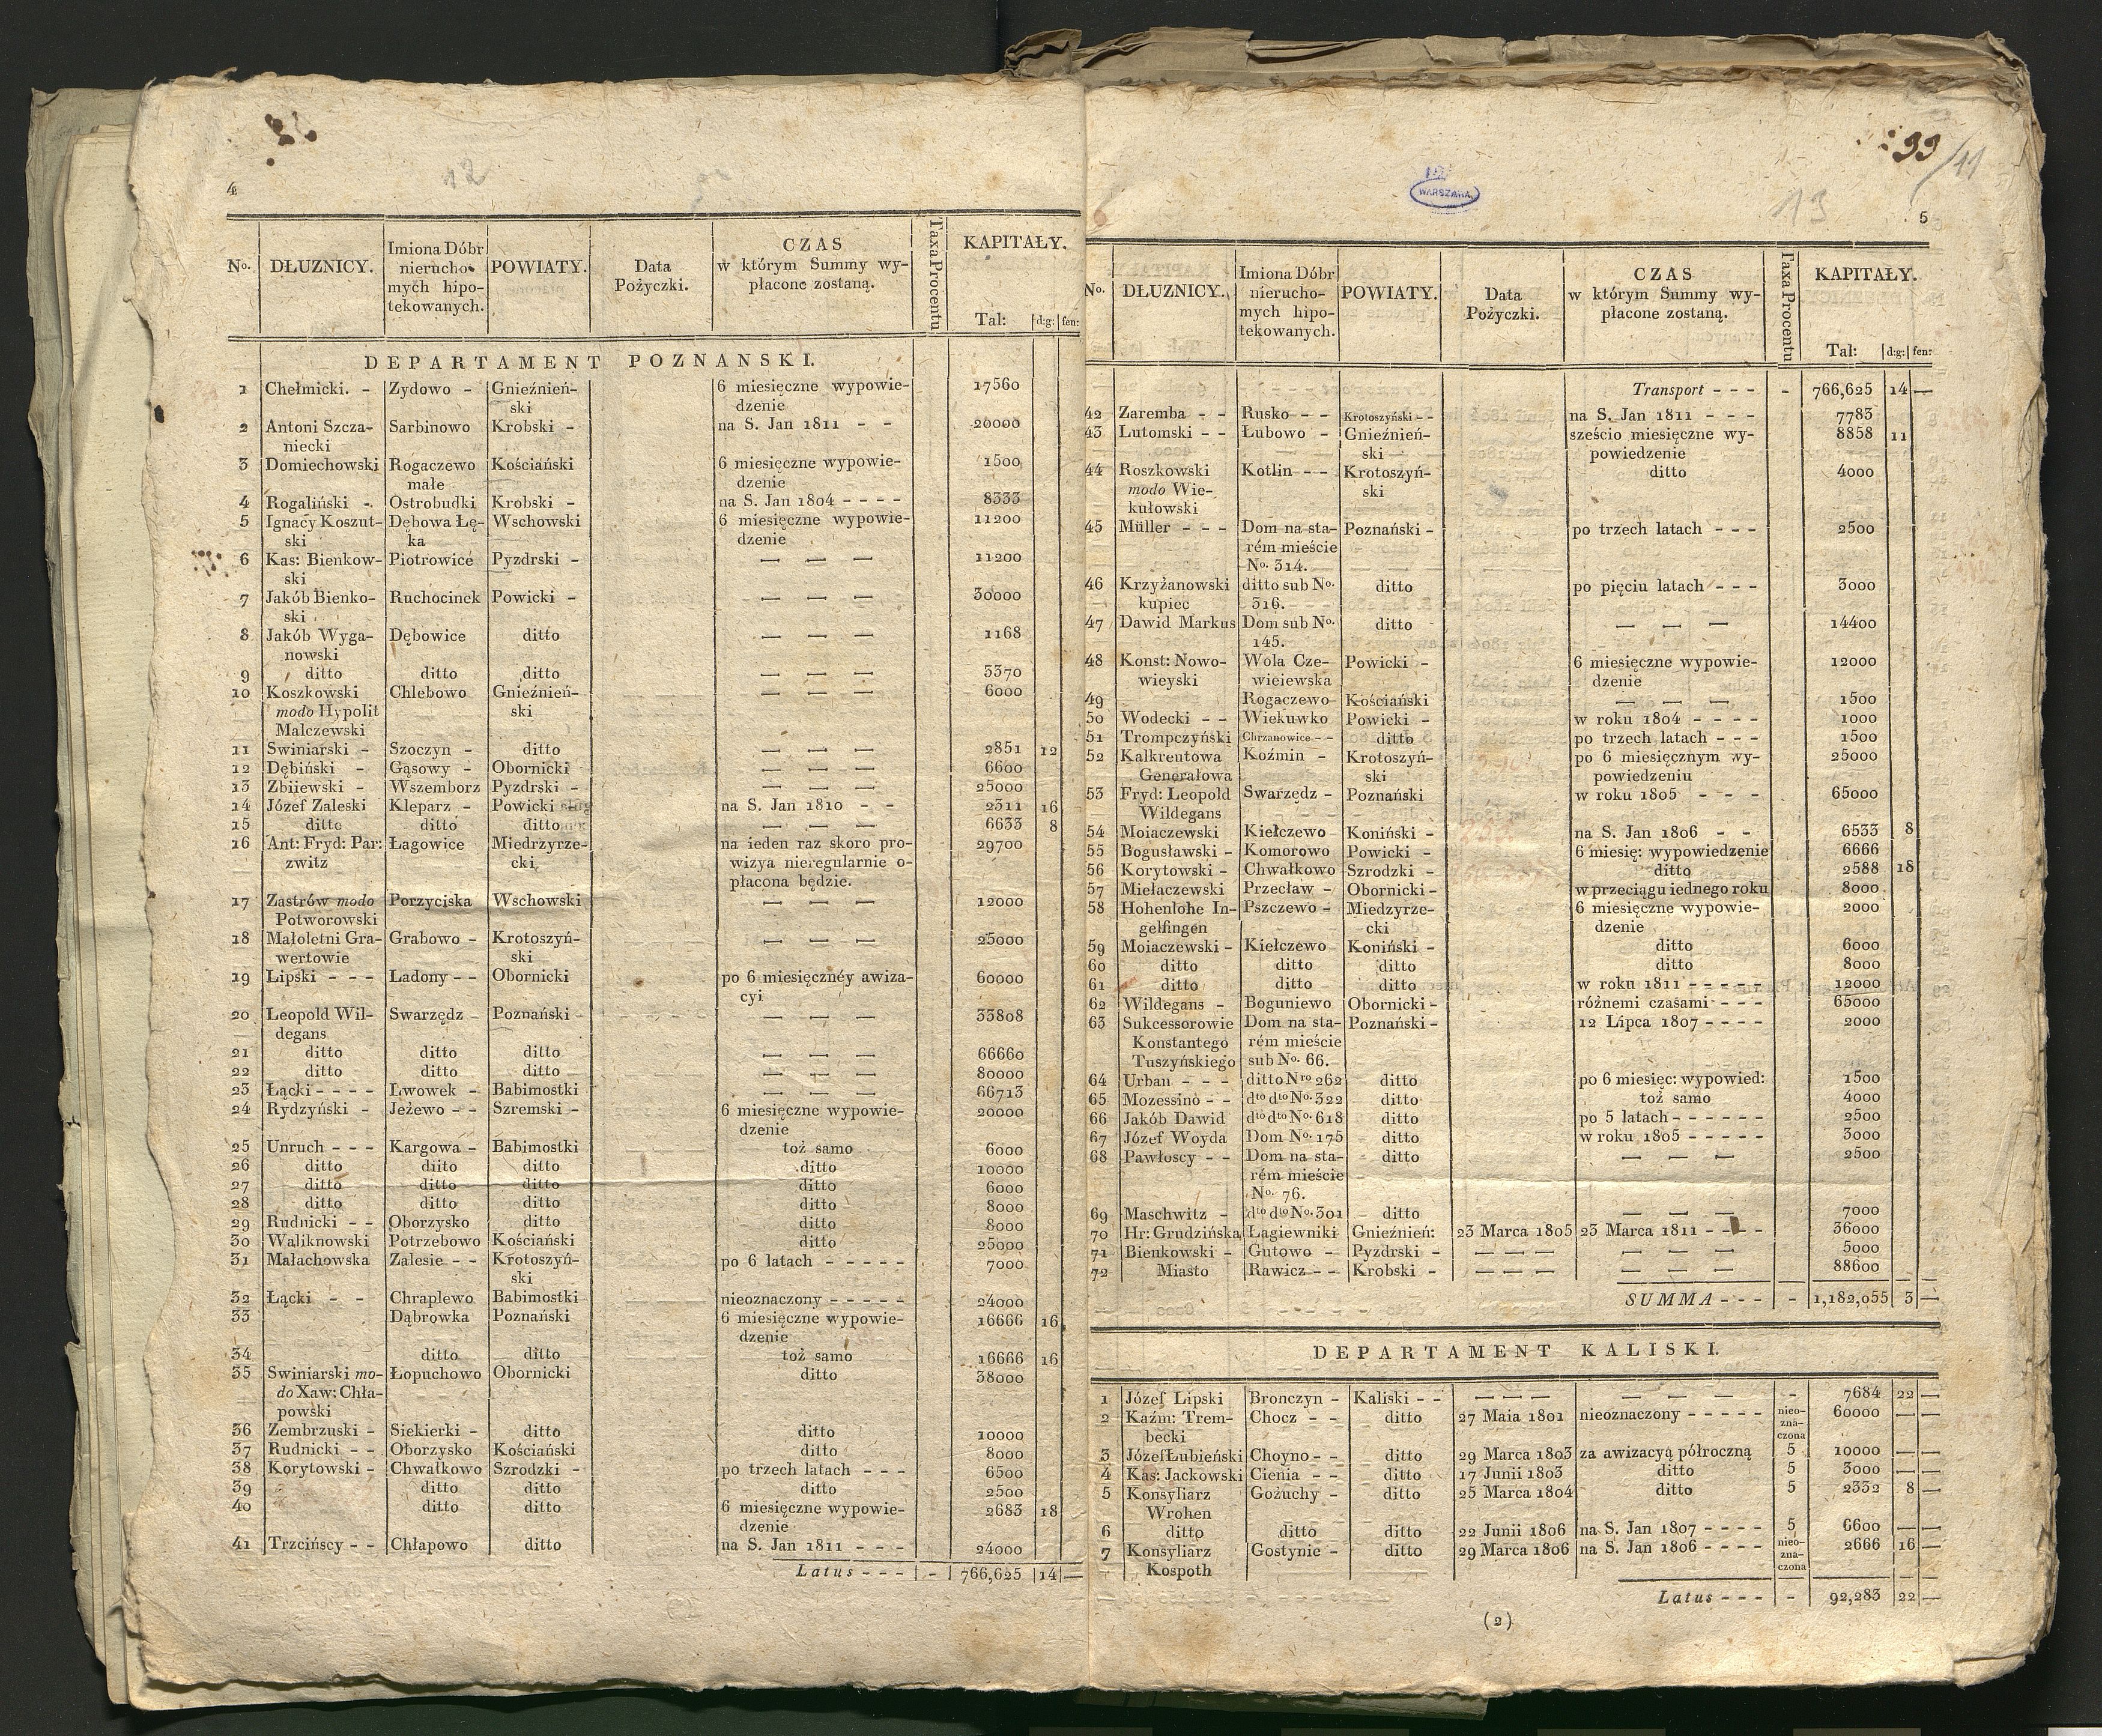 4
12
No. DŁUZNICY. Imiona Dóbr nierucho- mych hipo- tekowanych. POWIATY. Data Pożyczki. CZAS w którym Summy wy- płacone zostaną. Taxa Procentu KAPITAŁY. Tal: d:g: fen:
DEPARTAMENT POZNANSKI.
1 Chełmicki. - Zydowo - Gnieźnień- 6 miesięczne wypowie- 17560
ski dzenie
2 Antoni Szcza- Sarbinowo Krobski - na S. Jan 1811 - - 20000
niecki
3 Domiechowski Rogaczewo Kościański 6 miesięczne wypowie- 1500
małe dzenie
4 Rogaliński - Ostrobudki Krobski - na S. Jan 1804 - - - - 8333
5 Ignacy Koszut- Dębowa Łę- Wschowski 6 miesięczne wypowie- 11200
ski ka dzenie
6 Kas: Bienkow- Piotrowice Pyzdrski - — — — 11200
ski
7 Jakób Bienko- Ruchocinek Powicki - — — — 30000
ski
8 Jakób Wyga- Dębowice ditto — — — 1168
nowski
9 ditto ditto ditto — — — 3370
10 Koszkowski Chlebowo Gnieźnień- — — — 6000
modo Hypolit ski
Malczewski
11 Swiniarski - Szoczyn - ditto — — — 2851 12
12 Dębiński - Gąsowy - Obornicki — — — 6600
13 Zbiiewski - Wszemborz Pyzdrski - — — — 25000
14 Józef Zaleski Kleparz - Powicki na S. Jan 1810 - - 2311 16
15 ditto ditto ditto — — — 6633 8
16 Ant: Fryd: Par: Łagowice Miedrzyrze- na ieden raz skoro pro- 29700
zwitz cki wizya nieregularnie o-
płacona będzie.
17 Zastrów modo Porzyciska Wschowski — — — 12000
Potworowski
18 Małoletni Gra- Grabowo - Krotoszyń- — — — 25000
wertowie ski
19 Lipski - - - Ladony - - Obornicki po 6 miesięcznéy awiza- 60000
cyi
20 Leopold Wil- Swarzędz - Poznański - — — — 33808
degans
21 ditto ditto ditto — — — 66660
22 ditto ditto ditto — — — 80000
23 Łącki - - - - Lwowek - Babimostki — — — 66713
24 Rydzyński - Jeżewo - - Szremski - 6 miesięczne wypowie- 20000
dzenie
25 Unruch - - - Kargowa - Babimostki toż samo 6000
26 ditto diito ditto ditto 10000
27 ditto ditto ditto ditto 6000
28 ditto ditto ditto ditto 8000
29 Rudnicki - - Oborzysko ditto ditto 8000
30 Waliknowski Potrzebowo Kościański ditto 25000
31 Małachowska Zalesie - - Krotoszyń- po 6 latach - - - - - 7000
ski
32 Łącki - - Chraplewo Babimostki nieoznaczony - - - - - 24000
33 Dąbrowka Poznański 6 miesięczne wypowie- 16666 16
dzenie
34 ditto ditto toż samo 16666 16
35 Swiniarski mo- Łopuchowo Obornicki ditto 38000
do Xaw: Chła-
powski
36 Zembrzuski - Siekierki - ditto ditto 10000
37 Rudnicki - - Oborzysko Kościański ditto 8000
38 Korytowski - Chwałkowo Szrodzki - po trzech latach - - - 6500
39 ditto ditto ditto 2500
40 ditto ditto 6 miesięczne wypowie- 2683 18
dzenie
41 Trzcińscy - - Chłapowo ditto na S. Jan 1811 - - - 24000
Latus - - - - 766,625 14 —
99/11
WARSZAWA
13
5
No. DŁUZNICY. Imiona Dóbr nierucho- mych hipo- tekowanych. POWIATY. Data Pożyczki. CZAS w którym Summy wy- płacone zostaną. Taxa Procentu KAPITAŁY. Tal: d:g: fen:
Transport - - - - 766,625 14 —
42 Zaremba - - Rusko - - Krotoszyński - na S. Jan 1811 - - - 7783
43 Lutomski - - Łubowo - Gnieźnień- sześcio miesięczne wy- 8858 11
ski powiedzenie
44 Roszkowski Kotlin - - Krotoszyń- ditto 4000
modo Wie- ski
kułowski
45 Müller - - - Dom na sta- Poznański - po trzech latach - - - 2500
rém mieście
No. 314.
46 Krzyżanowski ditto sub No. ditto po pięciu latach - - - 3000
kupiec 316.
47 Dawid Markus Dom sub No. ditto — — — 14400
145.
48 Konst: Nowo- Wola Cze- Powicki - 6 miesięczne wypowie- 12000
wieyski wieiewska dzenie
49 Rogaczewo Kościański — — — 1500
50 Wodecki - - Wiekuwko Powicki - w roku 1804 - - - - 1000
51 Trompczyński Chrzanowice - - ditto po trzech latach - - - 1500
52 Kalkreutowa Koźmin - Krotoszyń- po 6 miesięcznym wy- 25000
Generałowa ski powiedzeniu
53 Fryd: Leopold Swarzędz - Poznański w roku 1805 - - - 65000
Wildegans
54 Moiaczewski Kiełczewo Koniński - na S. Jan 1806 - - 6533 8
55 Bogusławski - Komorowo Powicki - 6 miesię: wypowiedzenie 6666
56 Korytowski - Chwałkowo Szrodzki - ditto 2588 18
57 Miełaczewski Przecław - Obornicki - w przeciągu iednego roku 8000
58 Hohenlohe In- Pszczewo - Miedzyrze- 6 miesięczne wypowie- 2000
gelfingen cki dzenie
59 Moiaczewski - Kiełczewo Koniński - ditto 6000
60 ditto ditto ditto ditto 8000
61 ditto ditto ditto w roku 1811 - - - - - 12000
62 Wildegans - Boguniewo Obornicki - różnemi czasami - - - 65000
63 Sukcessorowie Dom na sta- Poznański - 12 Lipca 1807 - - - - 2000
Konstantego rém mieście
Tuszyńskiego sub No. 66.
64 Urban - - - ditto Nro 262 ditto po 6 miesięc: wypowied: 1500
65 Mozessino - - dto dto No. 322 ditto toż samo 4000
66 Jakób Dawid dto dto No. 618 ditto po 5 latach - - - - - - 2500
67 Józef Woyda Dom No. 175 ditto w roku 1805 - - - - - 3000
68 Pawłoscy - - Dom na sta- ditto — — — 2500
rém mieście
No. 76.
69 Maschwitz - dto dto No. 301 ditto — — — 7000
70 Hr: Grudzińska Łagiewniki Gnieźnień: 23 Marca 1805 23 Marca 1811 - - - - 36000
71 Bienkowski - Gutowo - Pyzdrski - — — — — — — 5000
72 Miasto Rawicz - - Krobski - — — — — — — 88600
SUMMA - - - - 1,182,055 3 —
DEPARTAMENT KALISKI.
1 Józef Lipski Bronczyn - Kaliski - - — — — — — — - 7684 22 —
2 Kaźm: Trem- Chocz - - ditto 27 Maia 1801 nieoznaczony - - - - - nieo- zna- czona 60000 — —
becki
3 Józef Łubieński Choyno - - ditto 29 Marca 1803 za awizacyą półroczną 5 10000 — —
4 Kas: Jackowski Cienia - - ditto 17 Junii 1803 ditto 5 3000 — —
5 Konsyliarz Gożuchy - ditto 25 Marca 1804 ditto 5 2332 8 —
Wrohen
6 ditto ditto ditto 22 Junii 1806 na S. Jan 1807 - - - - 5 6600 — —
7 Konsyliarz Gostynie - ditto 29 Marca 1806 na S. Jan 1806 - - - - nieo- zna- czona 2666 16 —
Kospoth
Latus - - - - 92,283 22 —
(2)